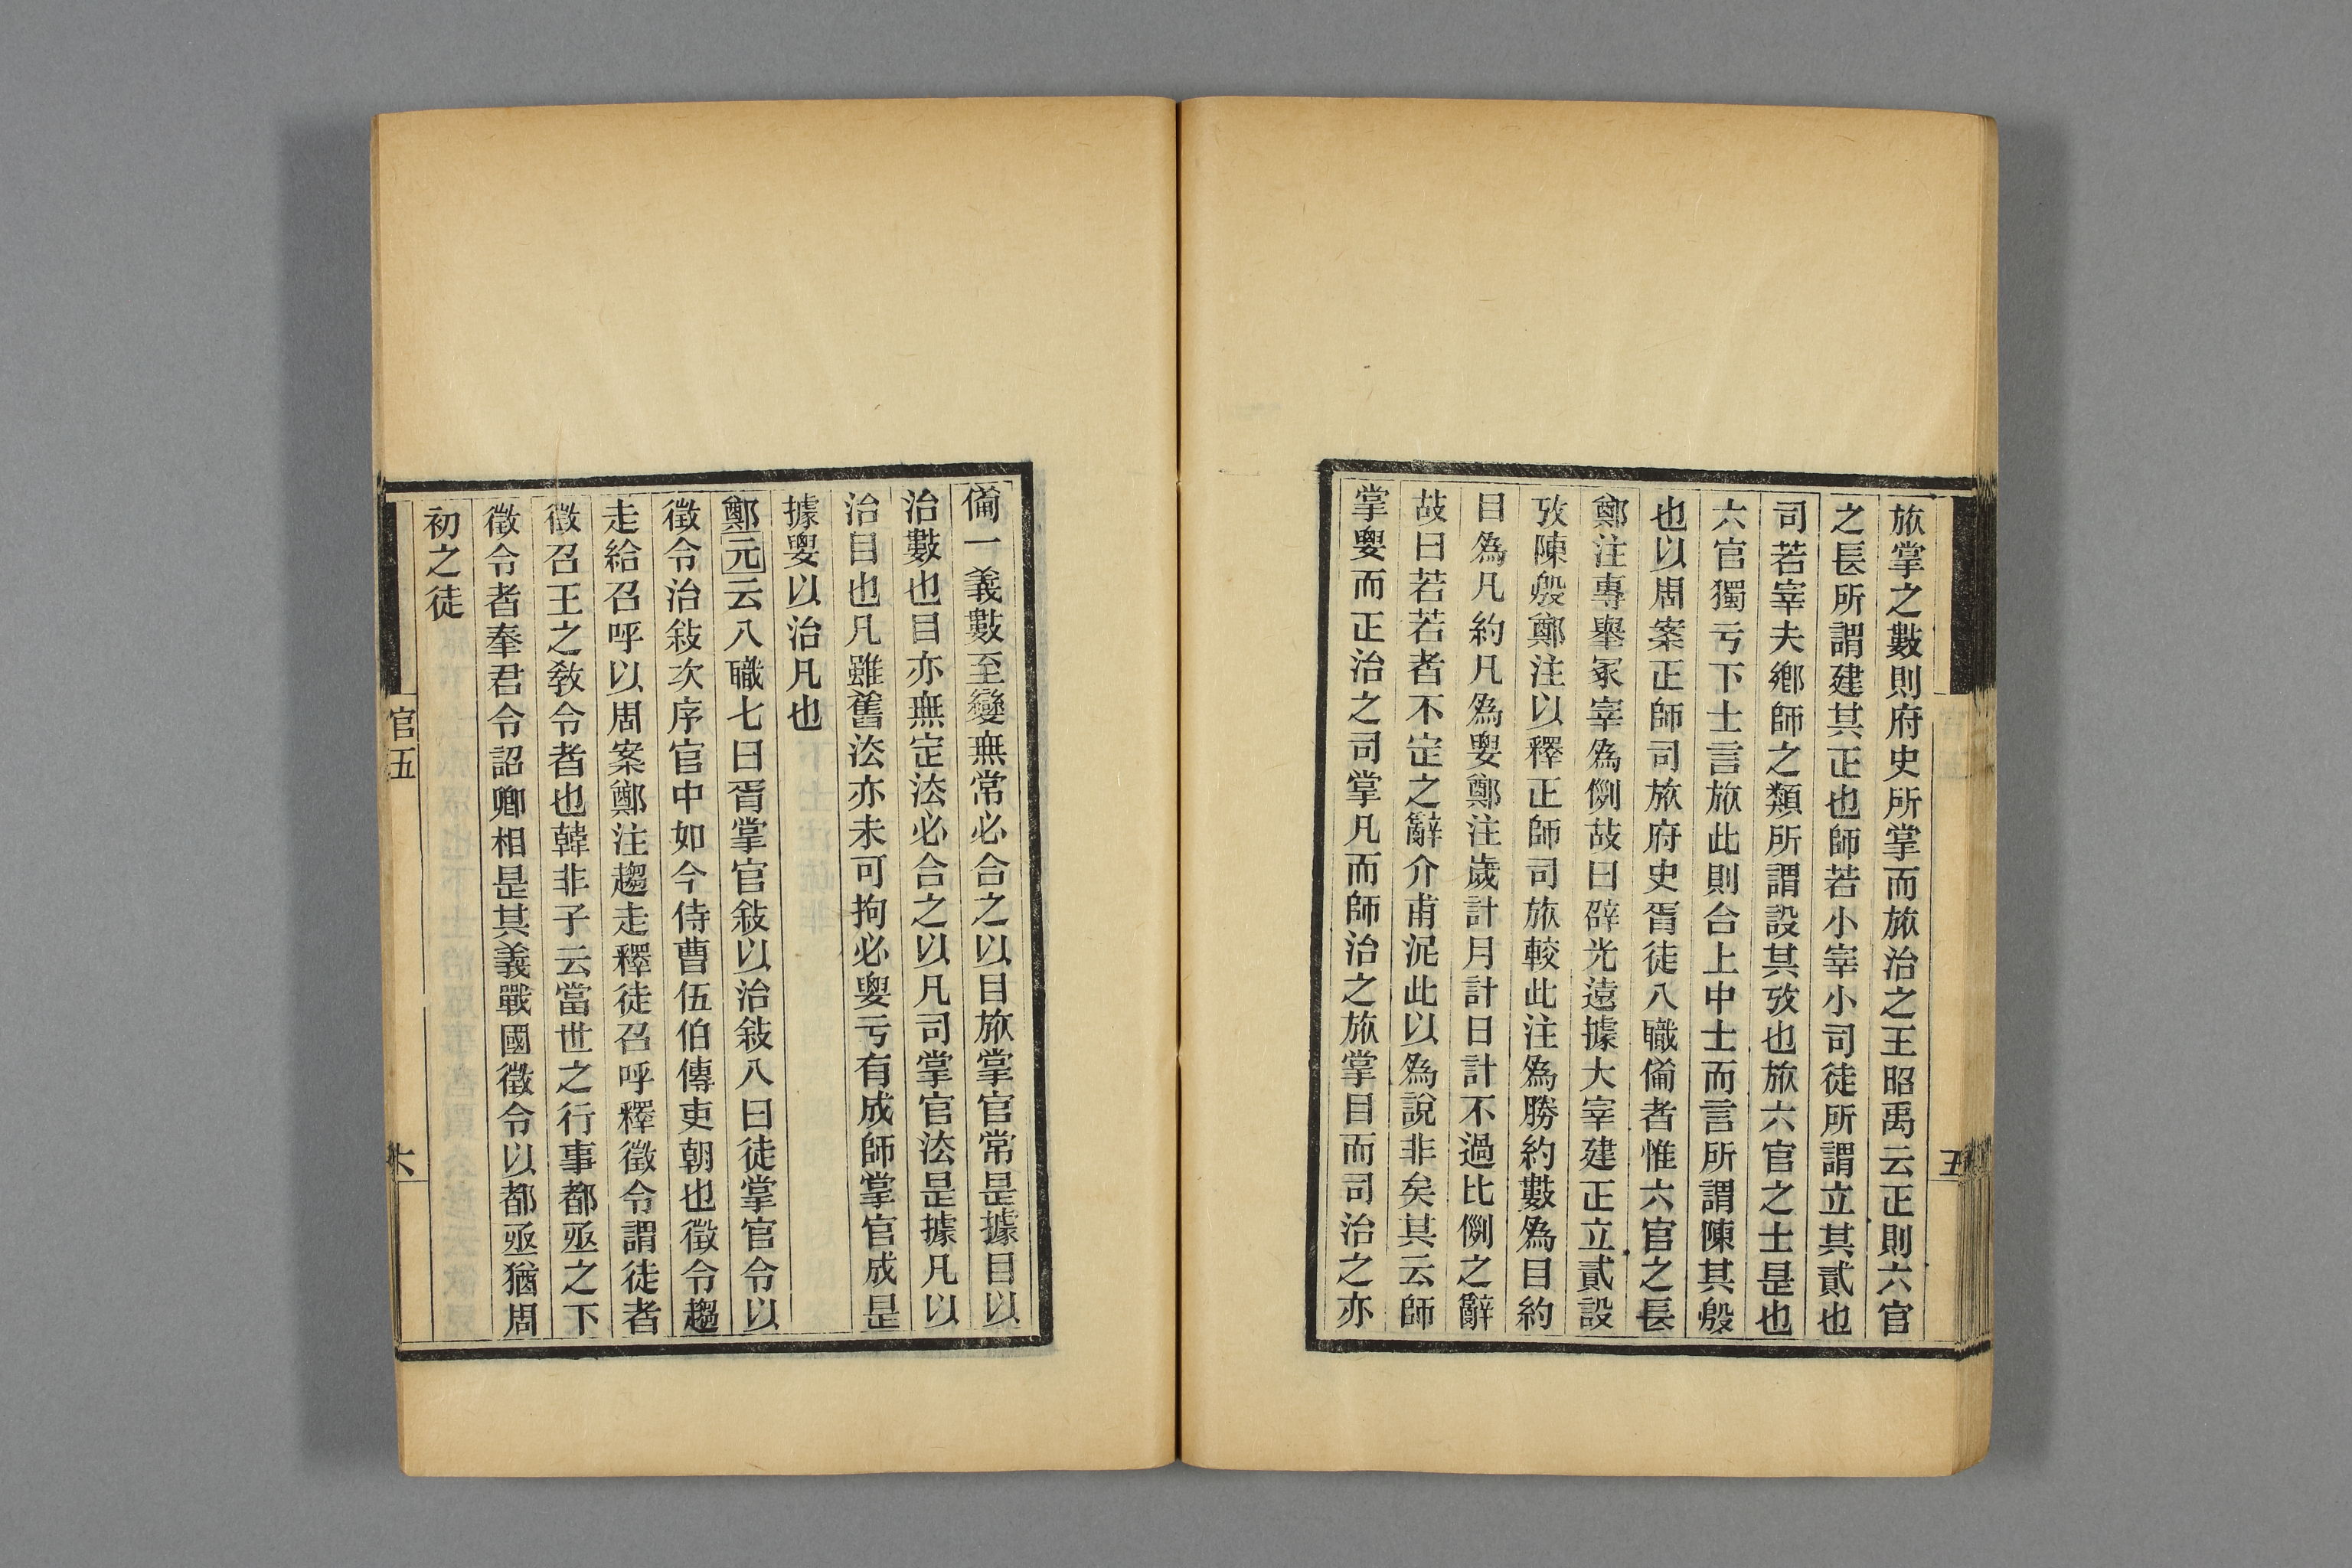 旅掌之數則府史所掌而旅治之王昭禹云正則六官
之長所謂建其正也師若小宰小司徒所謂立其貳也
司若宰夫鄉師之類所謂設其攷也旅六官之士是也
六官獨亏下士言旅此則合上中士而言所謂陳其殷
也以周案正師司旅府史胥徒八職僃者惟六官之長
鄭注專舉冢宰為㓡故曰辟光遠據大宰建正立貳設
攷陳殷鄭注以釋正師司旅較此注為勝約數為目約
目為凡約凡為要鄭注歲計月計日計不過比例之辭
故曰若若者不定之辭介甫泥此以為說非矣其云師
掌要而正治之司掌凡而師治之旅掌目而司治之亦
僃一義數至變無常必合之以目旅掌官常是據目以
治數也目亦無定法必合之以凡司掌官法是據凡以
治目也凡雖舊法亦未可拘必要亏有成師掌官成是
據要以治凡也
鄭元云八職七曰胥掌官敍以治敍八曰徒掌官令以
徵令治敍次序官中如今侍曹伍伯傳吏朝也徵令趨
走給召呼以周案鄭注趨走釋徒召呼釋徵令謂徒者
徵召王之教令者也韓非子云當世之行事都丞之下
徵令者奉君令詔卿相是其義戰國徵令以都丞猶周
初之徒
官五
六
五